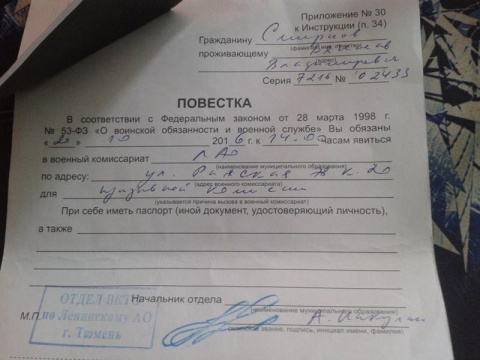 Приложение № 30
к Инструкции (п. 34)
Гражданину Смирнов
(фамилия, имя, отчество)
проживающему
Владимирович
(адрес)
Серия 7216 № 02433
ПОВЕСТКА
В соответствии с Федеральным законом от 28 марта 1998 г.
№ 53-ФЗ «О воинской обязанности и военной службе» Вы обязаны
« » 10 2016 г. к 14.00 часам явиться
в военный комиссариат ЛАО
(наименование муниципального образования)
по адресу: ул. 20
(адрес военного комиссариата)
для призывной комиссии
(указывается причина вызова в военный комиссариат)
При себе иметь паспорт (иной документ, удостоверяющий личность),
а также
Начальник отдела
(наименование муниципального образования)
М.П.
(воинское звание, подпись, инициал имени, фамилия)
ОТДЕЛ ВКТО
по Ленинскому АО
г. Тюмень